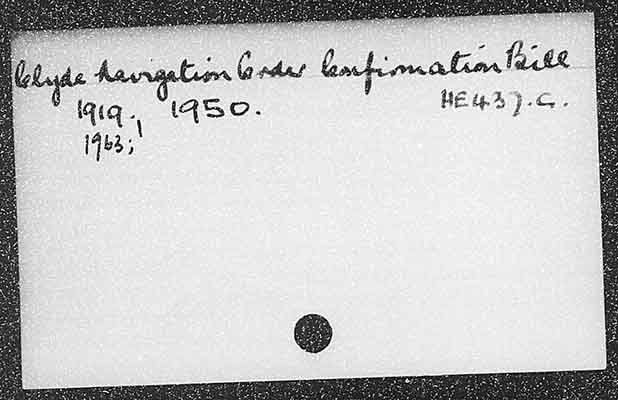 Clyde Navigation Order Confirmation Bill
1919., 1950. HE437.C.
1963;